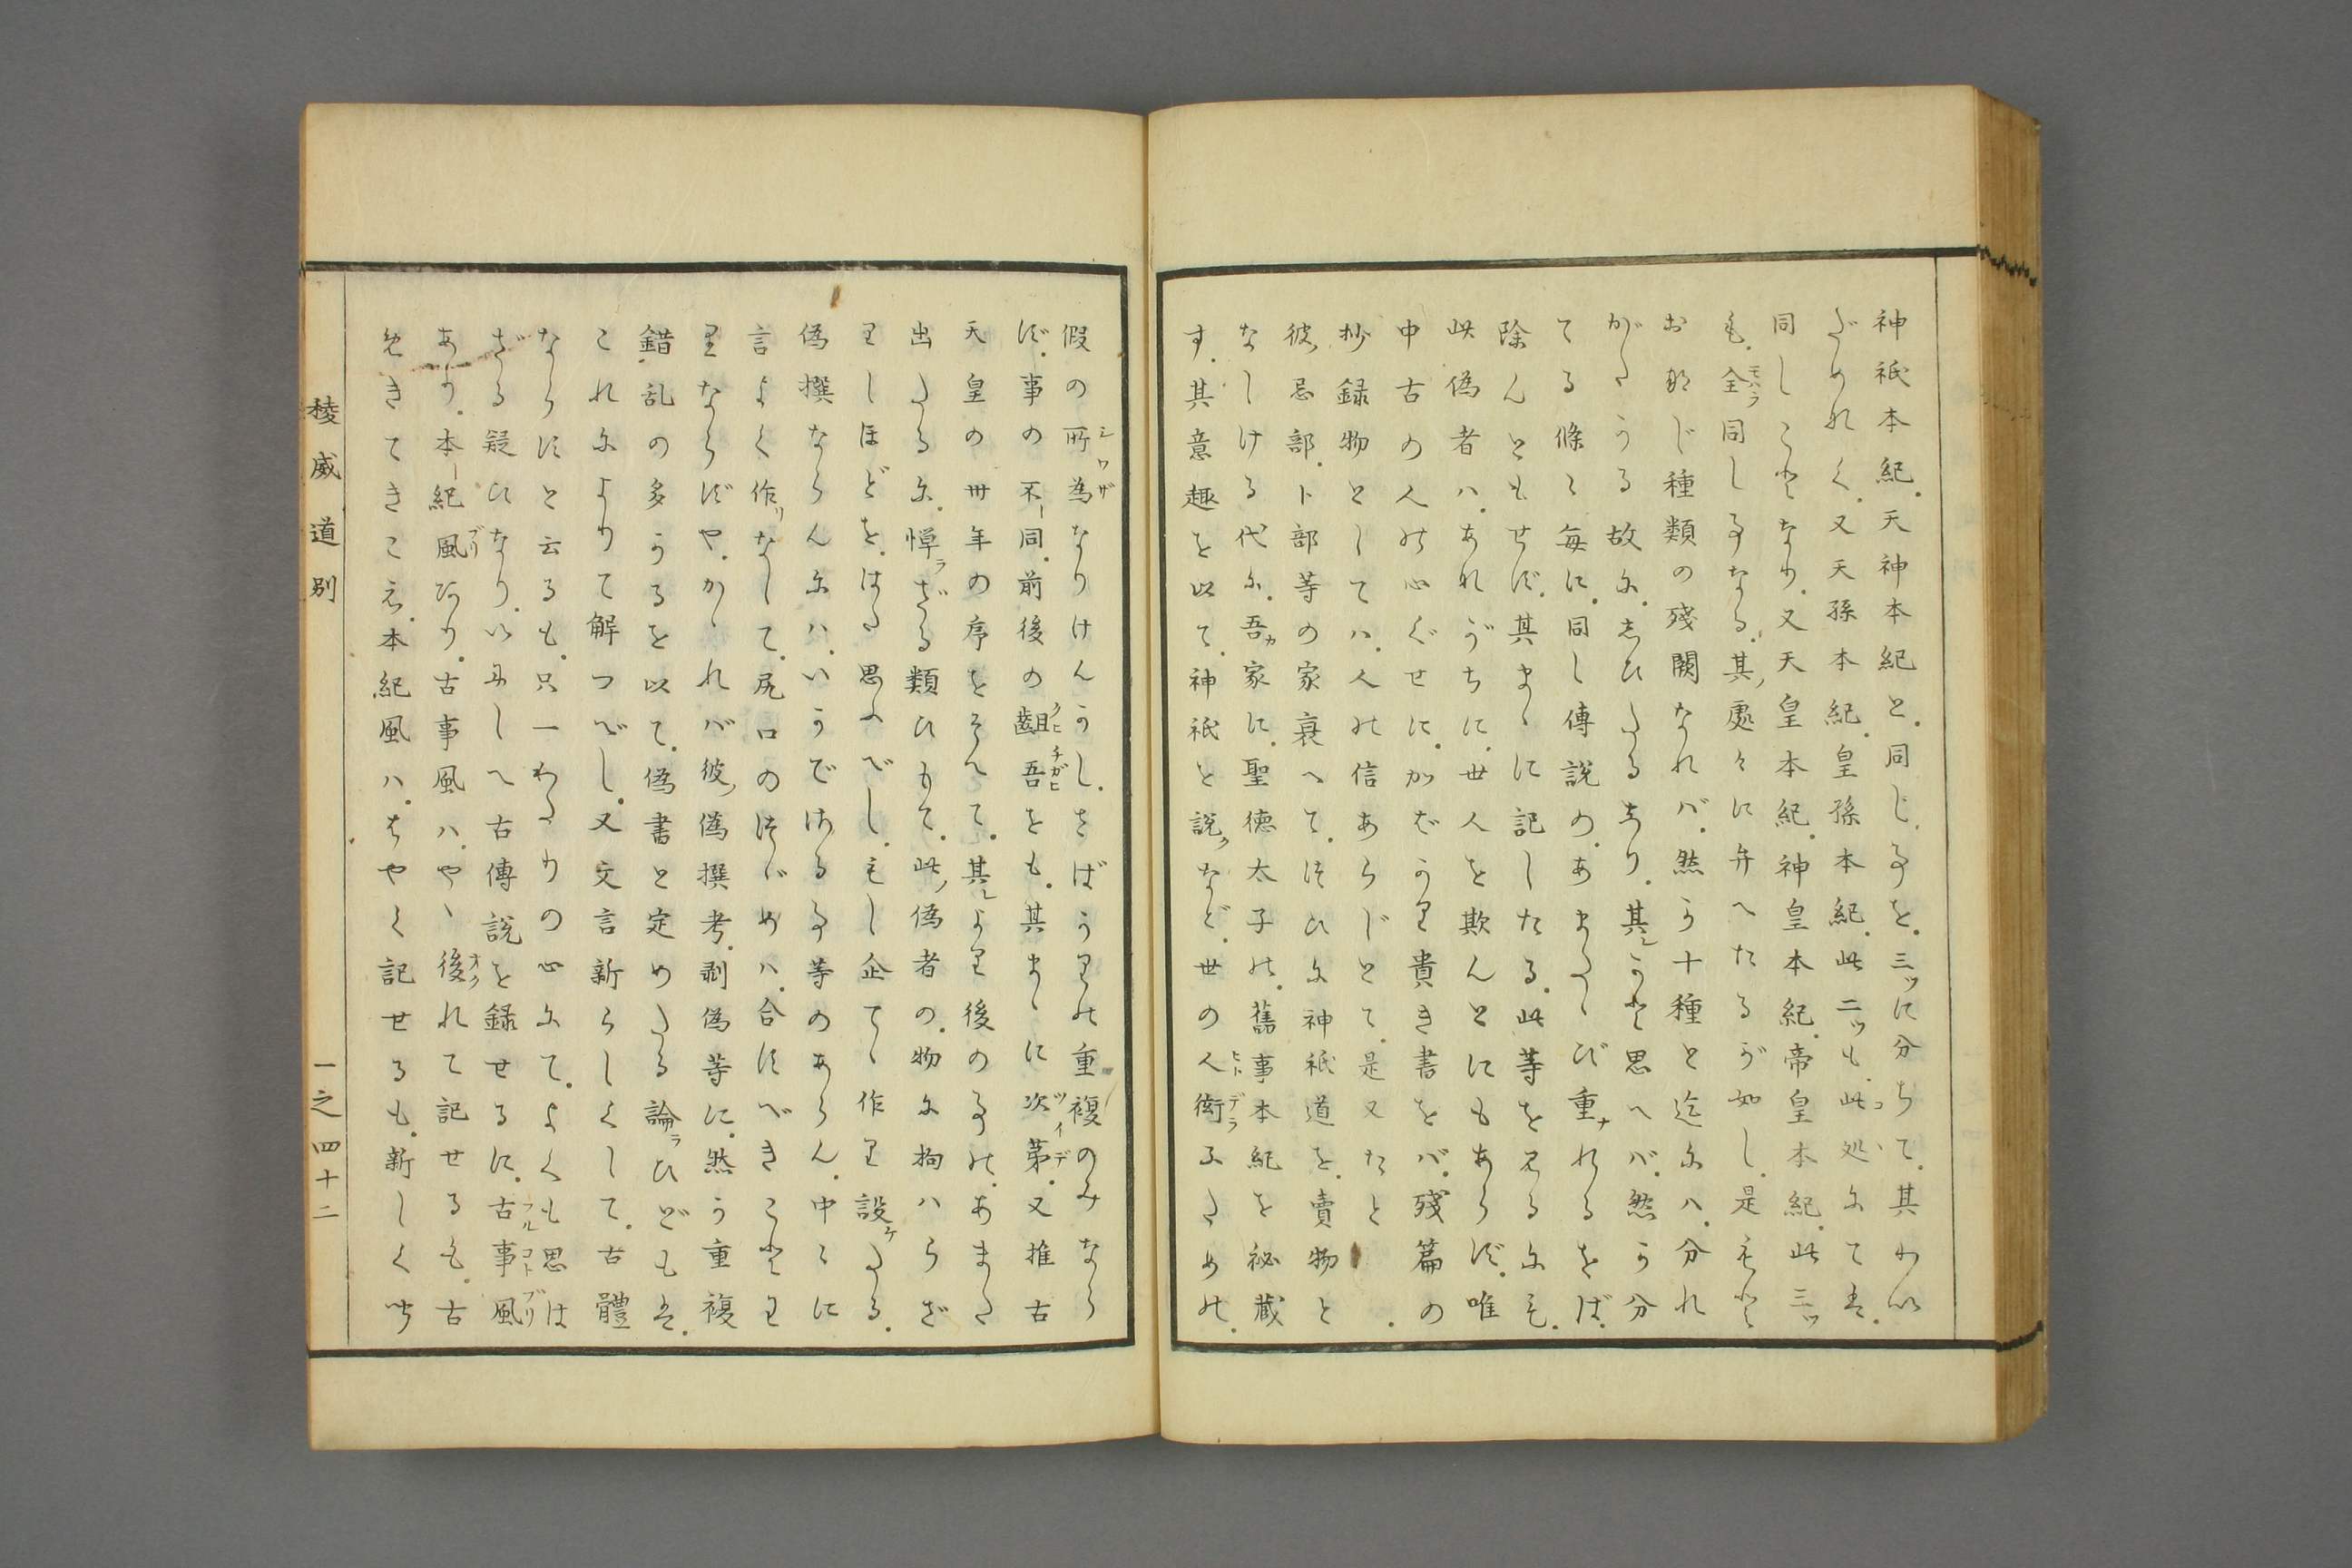 神祇本紀。天神本紀と。同じ事を。三ツに分ちて。其わい
だめれく。又天孫本紀。皇孫本紀。此二ツも。此処にては。
同しことなり。又天皇本紀。神皇本紀。帝皇本紀。此三ツ
も。全同し事なる。其ノ處々に弁へたるが如し。是もと
おなじ種類の残闕なれバ。然か十種と迄にハ。分れ
がたかる故に。しひたるなり。其しかと思へバ。然か分
てる條々毎に。同し傳説の。あまたゝび重れるをば。
除んともせず。其まゝに記したる。此等を見るにも。
此偽者ハ。あれがちに。世人を欺んとにもあらず。唯
中古の人の心ぐせに。かばかり貴き書をバ。殘篇の
抄録物としてハ。人の信あらじとて。是又たと
彼ノ忌部。卜部等の家衰へて。つひに神祇道を。賣物と
なしける代に。吾カ家に。聖徳太子の。舊事本紀を祕蔵
す。其意趣を以て。神祇と説クなど。世の人衒ふための。
假の所為なりけんかし。さばかりの重複のみなら
ず。事の不同。前後の齟吾をも。其まゝに次第。又推古
天皇の卅年の序をそへて。其より後の事の。あまた
出たるに。憚ラざる類ひもて。此ノ偽者の。物に拘ハらざ
りしほどを。はた思ふべし。もし企てゝ作り設ケたる。
偽撰ならんにハ。いかでける事等のあらん。中々に
言よく作リなして。尻口のつじめハ。合すべきことわ
りならずや。かゝれバ彼ノ偽撰考。剥偽等に。然か重複
錯乱の多かるを以て。偽書と定めたる論ラひどもは。
これによりて解つべし。又文言新らしくして。古體
ならずと云るも。只一わたりの心にて。よくも思は
ざる疑ひなり。いにしへ古傳説を録せるに。古事風
あり。本紀風あり。古事風ハ。やゝ後れて記せるも。古
めきてきこえ。本紀風ハ。はやく記せるも。新しく聞
稜威道別
一之四十二